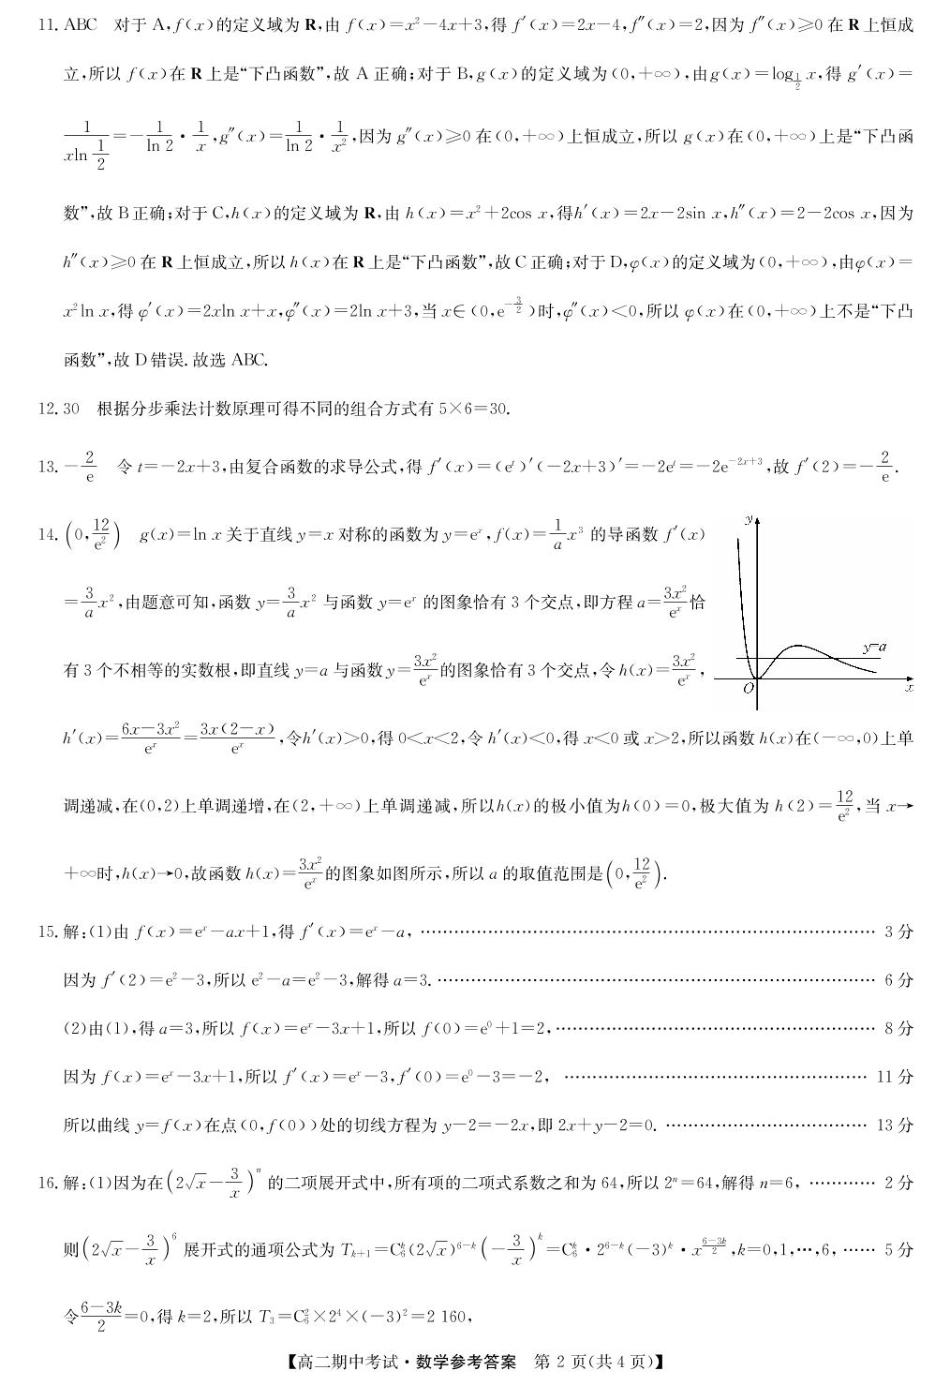 11. ABC　对于 A,f(x)的定义域为 R,由 f(x)=x²−4x+3,得 f′(x)=2x−4,f″(x)=2,因为 f″(x)≥0 在 R 上恒成
立,所以 f(x)在 R 上是“下凸函数”,故 A 正确;对于 B,g(x)的定义域为(0,+∞),由g(x)=log_{1/2} x,得 g′(x)=
1/(xln 1/2)=−1/(ln 2)·1/x,g″(x)=1/(ln 2)·1/x²,因为 g″(x)≥0 在(0,+∞)上恒成立,所以 g(x)在(0,+∞)上是“下凸函
数”,故 B 正确;对于 C,h(x)的定义域为 R,由 h(x)=x²+2cos x,得h′(x)=2x−2sin x,h″(x)=2−2cos x,因为
h″(x)≥0 在 R 上恒成立,所以 h(x)在 R 上是“下凸函数”,故 C 正确;对于 D,φ(x)的定义域为(0,+∞),由φ(x)=
x²ln x,得 φ′(x)=2xln x+x,φ″(x)=2ln x+3,当 x∈(0,e^{−3/2})时,φ″(x)<0,所以 φ(x)在(0,+∞)上不是“下凸
函数”,故 D 错误. 故选 ABC.
12. 30　根据分步乘法计数原理可得不同的组合方式有 5×6=30.
13. −2/e　令 t=−2x+3,由复合函数的求导公式,得 f′(x)=(eᵗ)′(−2x+3)′=−2eᵗ=−2e^{−2x+3},故 f′(2)=−2/e.
14. (0,12/e²)　g(x)=ln x 关于直线 y=x 对称的函数为 y=eˣ,f(x)=1/a x³ 的导函数 f′(x)
=3/a x²,由题意可知,函数 y=3/a x² 与函数 y=eˣ 的图象恰有 3 个交点,即方程 a=3x²/eˣ恰
有 3 个不相等的实数根,即直线 y=a 与函数 y=3x²/eˣ的图象恰有 3 个交点,令 h(x)=3x²/eˣ,
y
y=a
O
x
h′(x)=(6x−3x²)/eˣ=3x(2−x)/eˣ,令h′(x)>0,得 0<x<2,令 h′(x)<0,得 x<0 或 x>2,所以函数 h(x)在(−∞,0)上单
调递减,在(0,2)上单调递增,在(2,+∞)上单调递减,所以h(x)的极小值为h(0)=0,极大值为 h(2)=12/e²,当 x→
+∞时,h(x)→0,故函数 h(x)=3x²/eˣ的图象如图所示,所以 a 的取值范围是(0,12/e²).
15. 解:(1)由 f(x)=eˣ−ax+1,得 f′(x)=eˣ−a, …… 3 分
因为 f′(2)=e²−3,所以 e²−a=e²−3,解得 a=3. …… 6 分
(2)由(1),得 a=3,所以 f(x)=eˣ−3x+1,所以 f(0)=e⁰+1=2, …… 8 分
因为 f(x)=eˣ−3x+1,所以 f′(x)=eˣ−3,f′(0)=e⁰−3=−2, …… 11 分
所以曲线 y=f(x)在点(0,f(0))处的切线方程为 y−2=−2x,即 2x+y−2=0. …… 13 分
16. 解:(1)因为在(2√x−3/x)ⁿ 的二项展开式中,所有项的二项式系数之和为 64,所以 2ⁿ=64,解得 n=6, …… 2 分
则(2√x−3/x)⁶ 展开式的通项公式为 T_{k+1}=C₆ᵏ(2√x)^{6−k}(−3/x)ᵏ=C₆ᵏ·2^{6−k}(−3)ᵏ·x^{(6−3k)/2},k=0,1,…,6, …… 5 分
令(6−3k)/2=0,得 k=2,所以 T₃=C₆²×2⁴×(−3)²=2 160,
【高二期中考试·数学参考答案　第 2 页(共 4 页)】